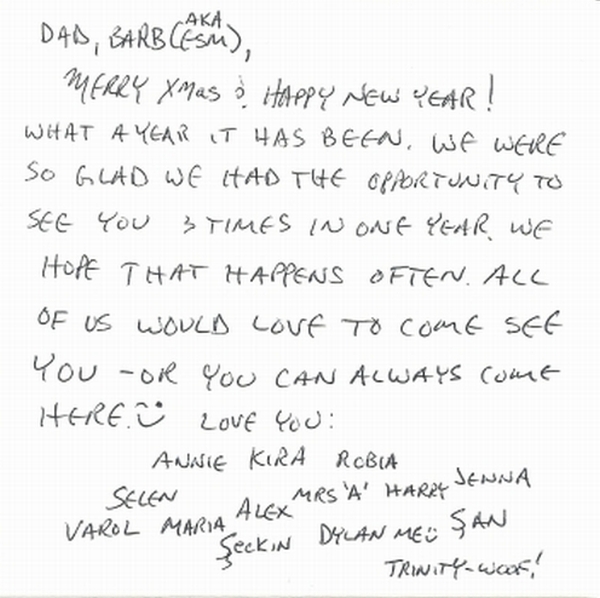 DAD, BARB (AKA ESM),
MERRY XMAS & HAPPY NEW YEAR!
WHAT A YEAR IT HAS BEEN. WE WERE
SO GLAD WE HAD THE OPPORTUNITY TO
SEE YOU 3 TIMES IN ONE YEAR. WE
HOPE THAT HAPPENS OFTEN. ALL
OF US WOULD LOVE TO COME SEE
YOU - OR YOU CAN ALWAYS COME
HERE. LOVE YOU:
ANNIE KIRA ROBIA
SELEN ALEX MRS 'A' HARRY JENNA
VAROL MARIA ŞECKIN DYLAN ME ŞAN
TRINITY-WOOF!